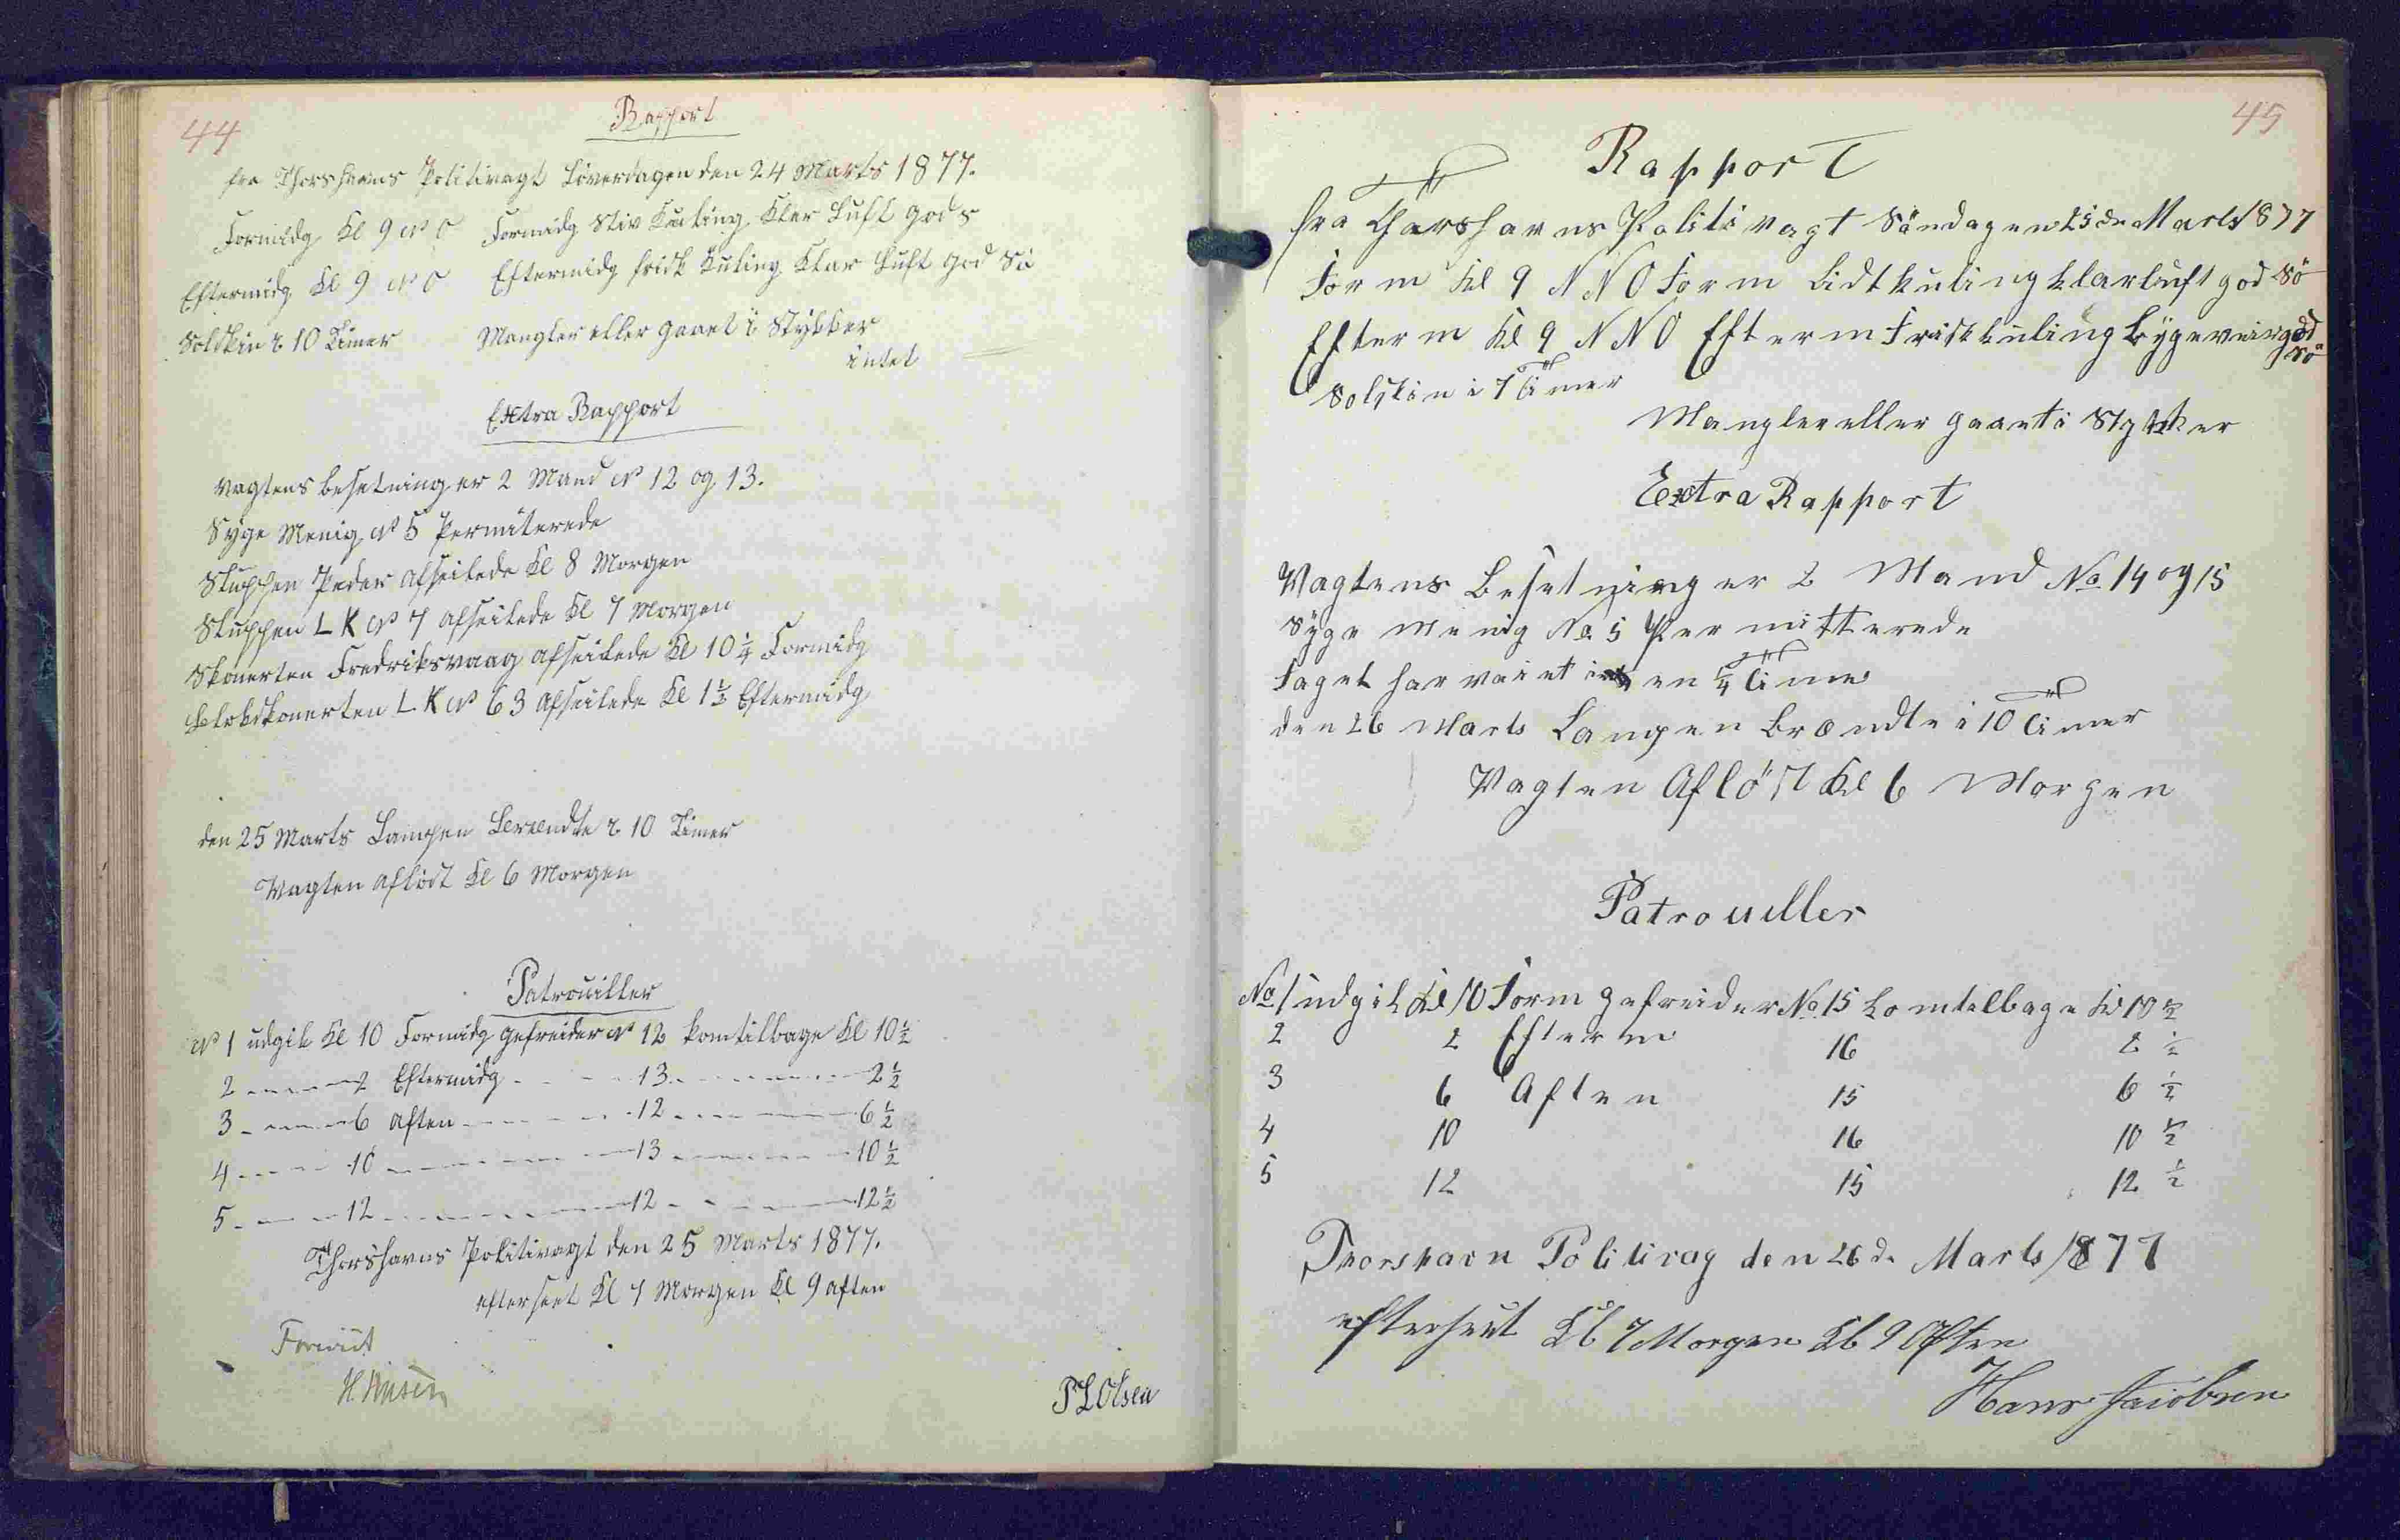 44
Rapport
fra Thorshavns Politivagt Löverdagen den 24 Marts 1877.
Formidg Kl 9 N O Formidg Stiv Kuling Klar Luft god S
Eftermidg Kl 9 N O Eftermidg frisk Kuling Klar Luft god Sö
Solskin i 10 Timer Mangler eller gaaet i Stykker
intet
Extra Rapport
Vagtens besetning er 2 Mand No 12 og 13.
Syge Menig No 5 Permiterede
Sluppen Peder afseilede Kl 8 Morgen
Sluppen L K No 7 afseilede Kl 7 Morgen
Skonerten Fredriksvaag afseilede Kl 10 1/4 Formidg
Slobskonerten L K No 63 afseilede Kl 1 1/2 Eftermidg
den 25 Marts Lampen Brændte i 10 Timer
Vagten aflöst Kl 6 Morgen
Patrouiller
No 1 udgik Kl 10 Formidg gefreider No 12 komtilbage Kl 10 1/2
2 2 Eftermidg 13 2 1/2
3 6 aften 12 6 1/2
4 10 13 10 1/2
5 12 12 12 1/2
Thorshavns Politivagt den 25 Marts 1877.
efterseet Kl 7 Morgen Kl 9 aften
Forevist
P L Olsen
45
Rapport
fra Thorshavns Politivagt Söndagen 25de Marts 1877
Form Kl 9 N N O Form lidt kuling klarluft god Sö
Efterm Kl 9 N N O Efterm Frisk kuling bygeveir god
Sö
Solskin i 7 Timer
Mangler eller gaaet i Stykker
Extra Rapport
Vagtens Besetning er 2 Mand No 14 og 15
Syge Menig No 5 Permitterede
Taget har veiet i en 1/4 Time
den 26 Marts Lampen Brændte i 10 Timer
Vagten Aflöst Kl 6 Morgen
Patrouiller
No 1 udgik Kl 10 Form gefreider No 15 komtelbage Kl 10 1/2
2 2 Efterm 16 2 1/2
3 6 Aften 15 6 1/2
4 10 16 10 1/2
5 12 15 12 1/2
Thorshavn Politivag den 26d. Marts 1877
efterseet Kl 7 Morgen Kl 9 Aften
Hans Jacobsen